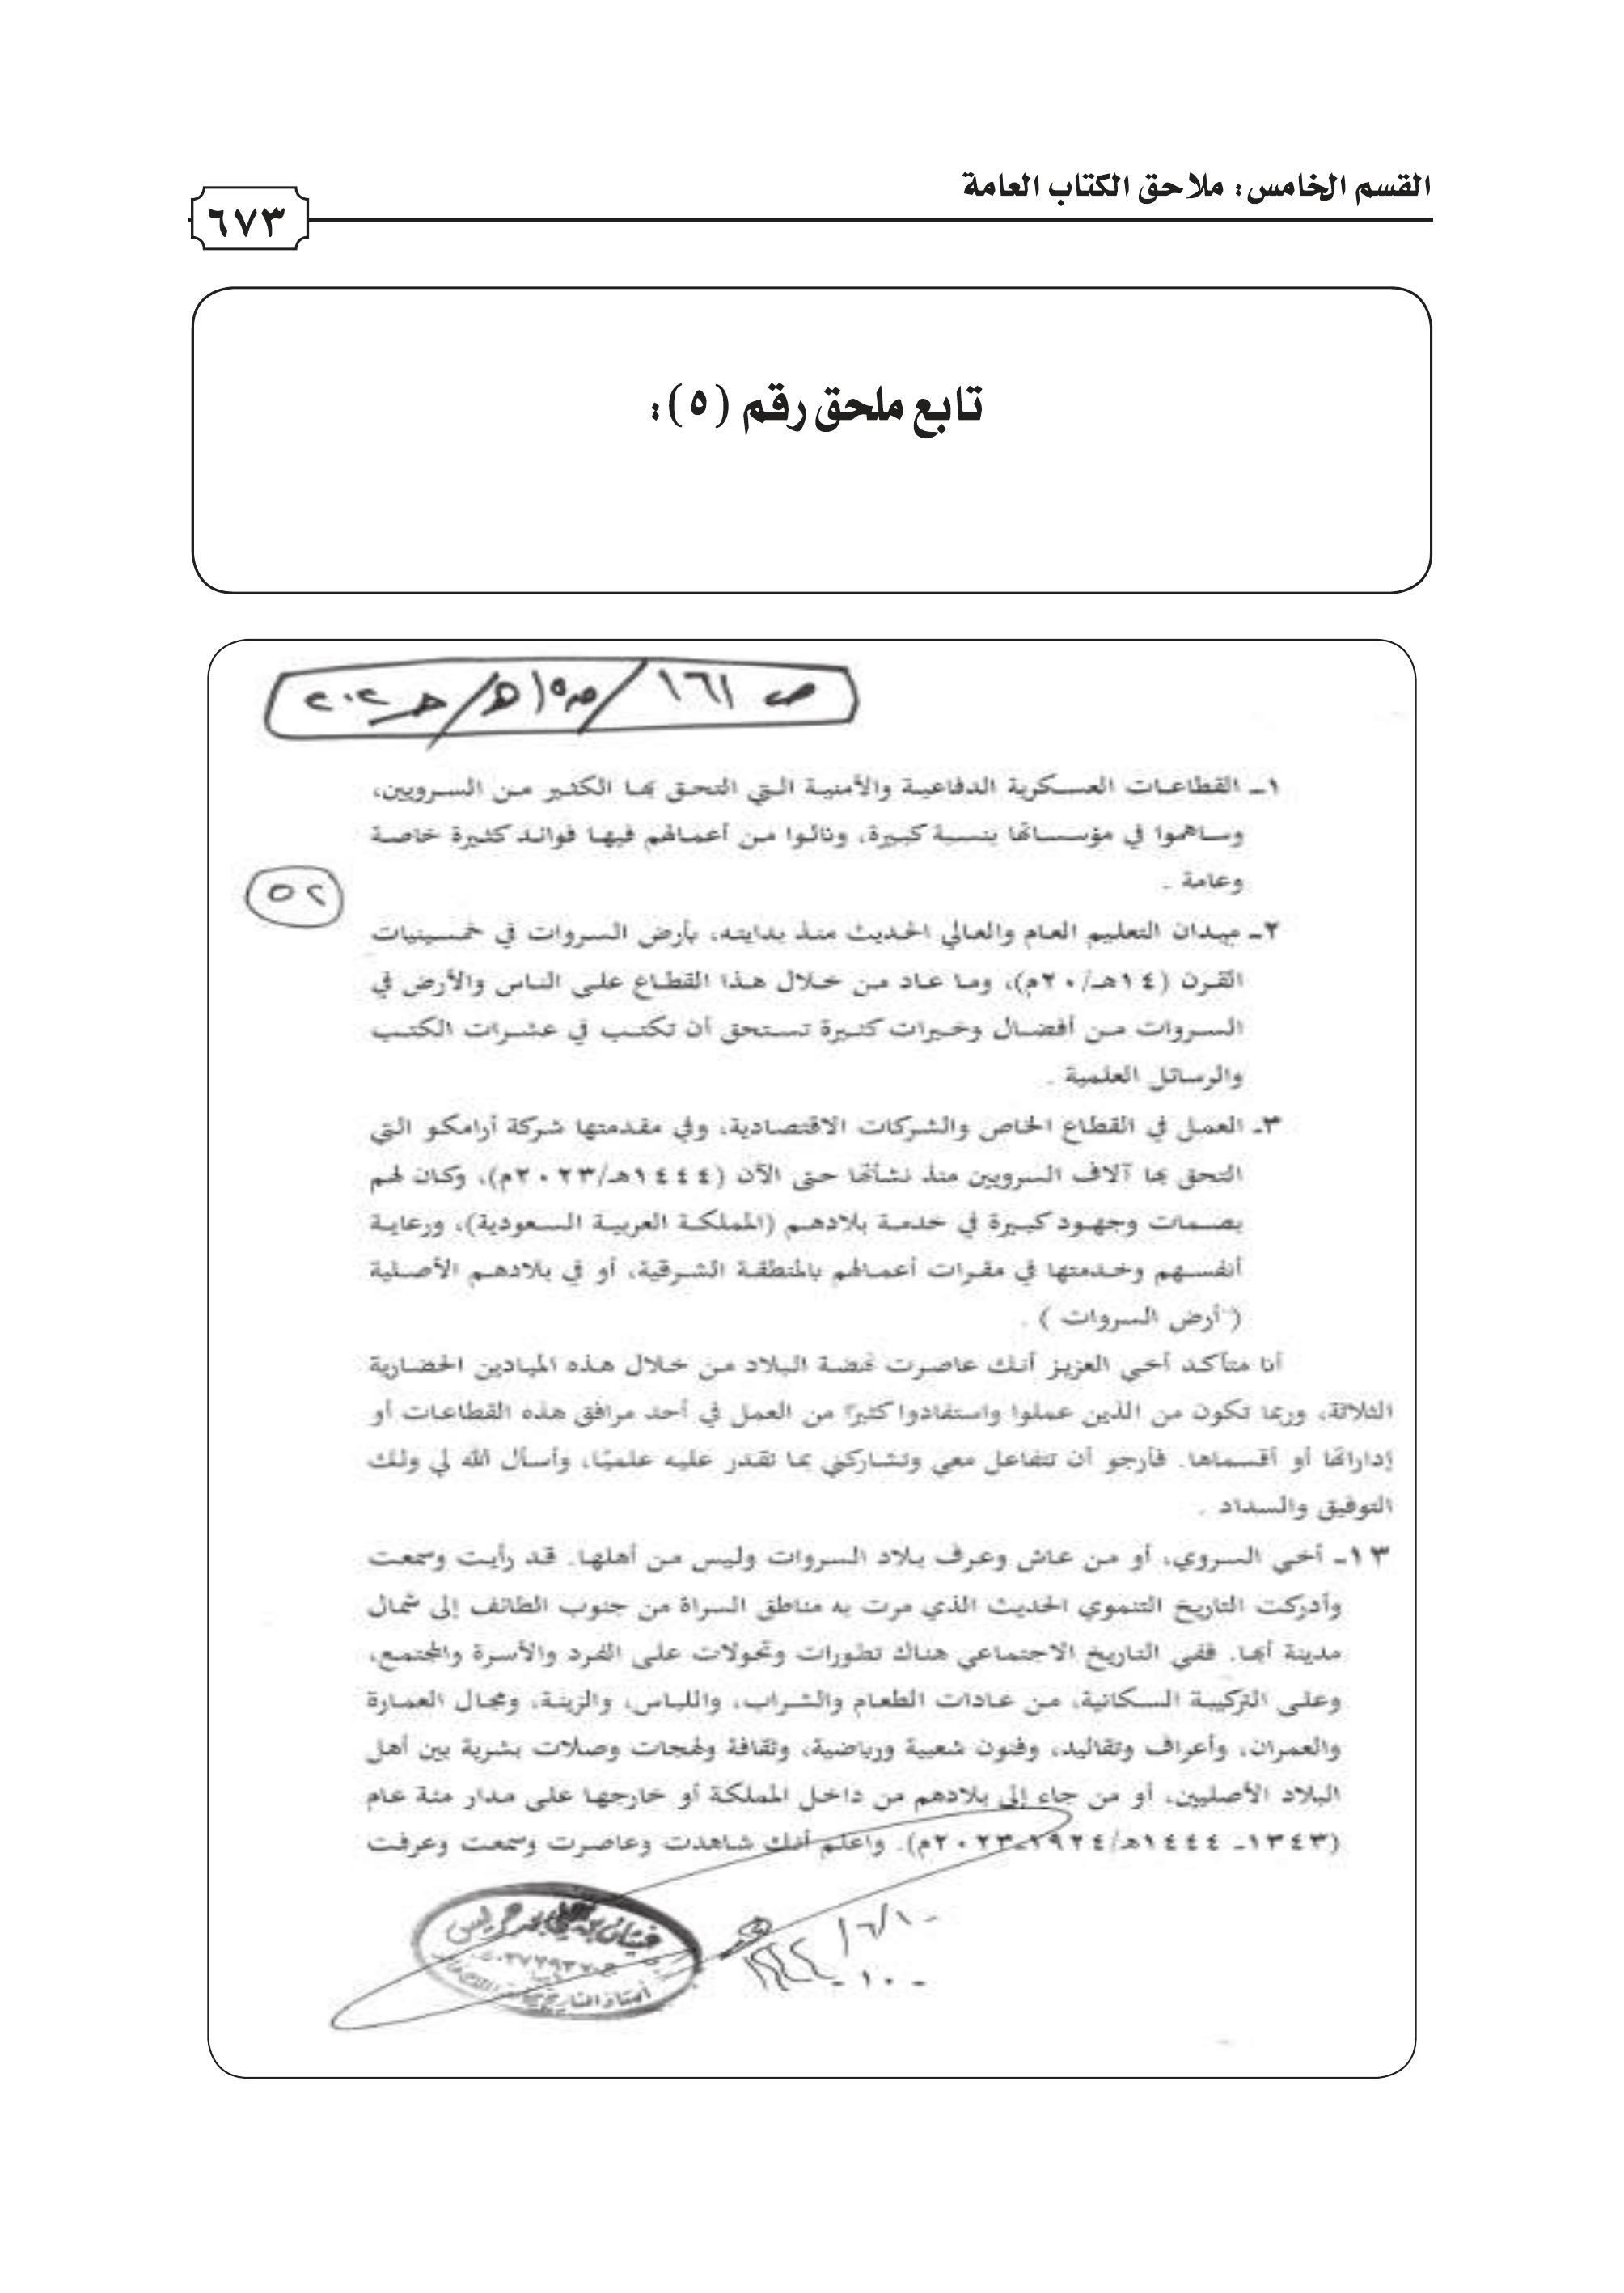 القسم الخامس: ملاحق الكتاب العامة
٦٧٣
تابع ملحق رقم (٥):
ص ١٦١
١ـ القطاعات العسكرية الدفاعية والأمنية التي التحق بها الكثير من السرويين،
وساهموا في مؤسساتها بنسبة كبيرة، ونالوا من أعمالهم فيها فوائد كثيرة خاصة
وعامة .
٥٢
٢ـ ميدان التعليم العام والعالي الحديث منذ بدايته، بأرض السروات في خمسينيات
القرن (١٤هـ/٢٠م)، وما عاد من خلال هذا القطاع على الناس والأرض في
السروات من أفضال وخيرات كثيرة تستحق أن تكتب في عشرات الكتب
والرسائل العلمية .
٣ـ العمل في القطاع الخاص والشركات الاقتصادية، وفي مقدمتها شركة أرامكو التي
التحق بها آلاف السرويين منذ نشأتها حتى الآن (١٤٤٤هـ/٢٠٢٣م)، وكان لهم
بصمات وجهود كبيرة في خدمة بلادهم (المملكة العربية السعودية)، ورعاية
أنفسهم وخدمتها في مقرات أعمالهم بالمنطقة الشرقية، أو في بلادهم الأصلية
( أرض السروات ) .
أنا متأكد أخي العزيز أنك عاصرت نهضة البلاد من خلال هذه الميادين الحضارية
الثلاثة، وربما تكون من الذين عملوا واستفادوا كثيرًا من العمل في أحد مرافق هذه القطاعات أو
إداراتها أو أقسماها. فأرجو أن تتفاعل معي وتشاركني بما تقدر عليه علميًا، وأسأل الله لي ولك
التوفيق والسداد .
١٣ـ أخي السروي، أو من عاش وعرف بلاد السروات وليس من أهلها. قد رأيت وسمعت
وأدركت التاريخ التنموي الحديث الذي مرت به مناطق السراة من جنوب الطائف إلى شمال
مدينة أبها. ففي التاريخ الاجتماعي هناك تطورات وتحولات على الفرد والأسرة والمجتمع،
وعلى التركيبة السكانية، من عادات الطعام والشراب، واللباس، والزينة، ومجال العمارة
والعمران، وأعراف وتقاليد، وفنون شعبية ورياضية، وثقافة ولهجات وصلات بشرية بين أهل
البلاد الأصليين، أو من جاء إلى بلادهم من داخل المملكة أو خارجها على مدار مئة عام
(١٣٤٣ـ ١٤٤٤هـ/١٩٢٤ـ٢٠٢٣م). واعلم أنك شاهدت وعاصرت وسمعت وعرفت
أستاذ التاريخ